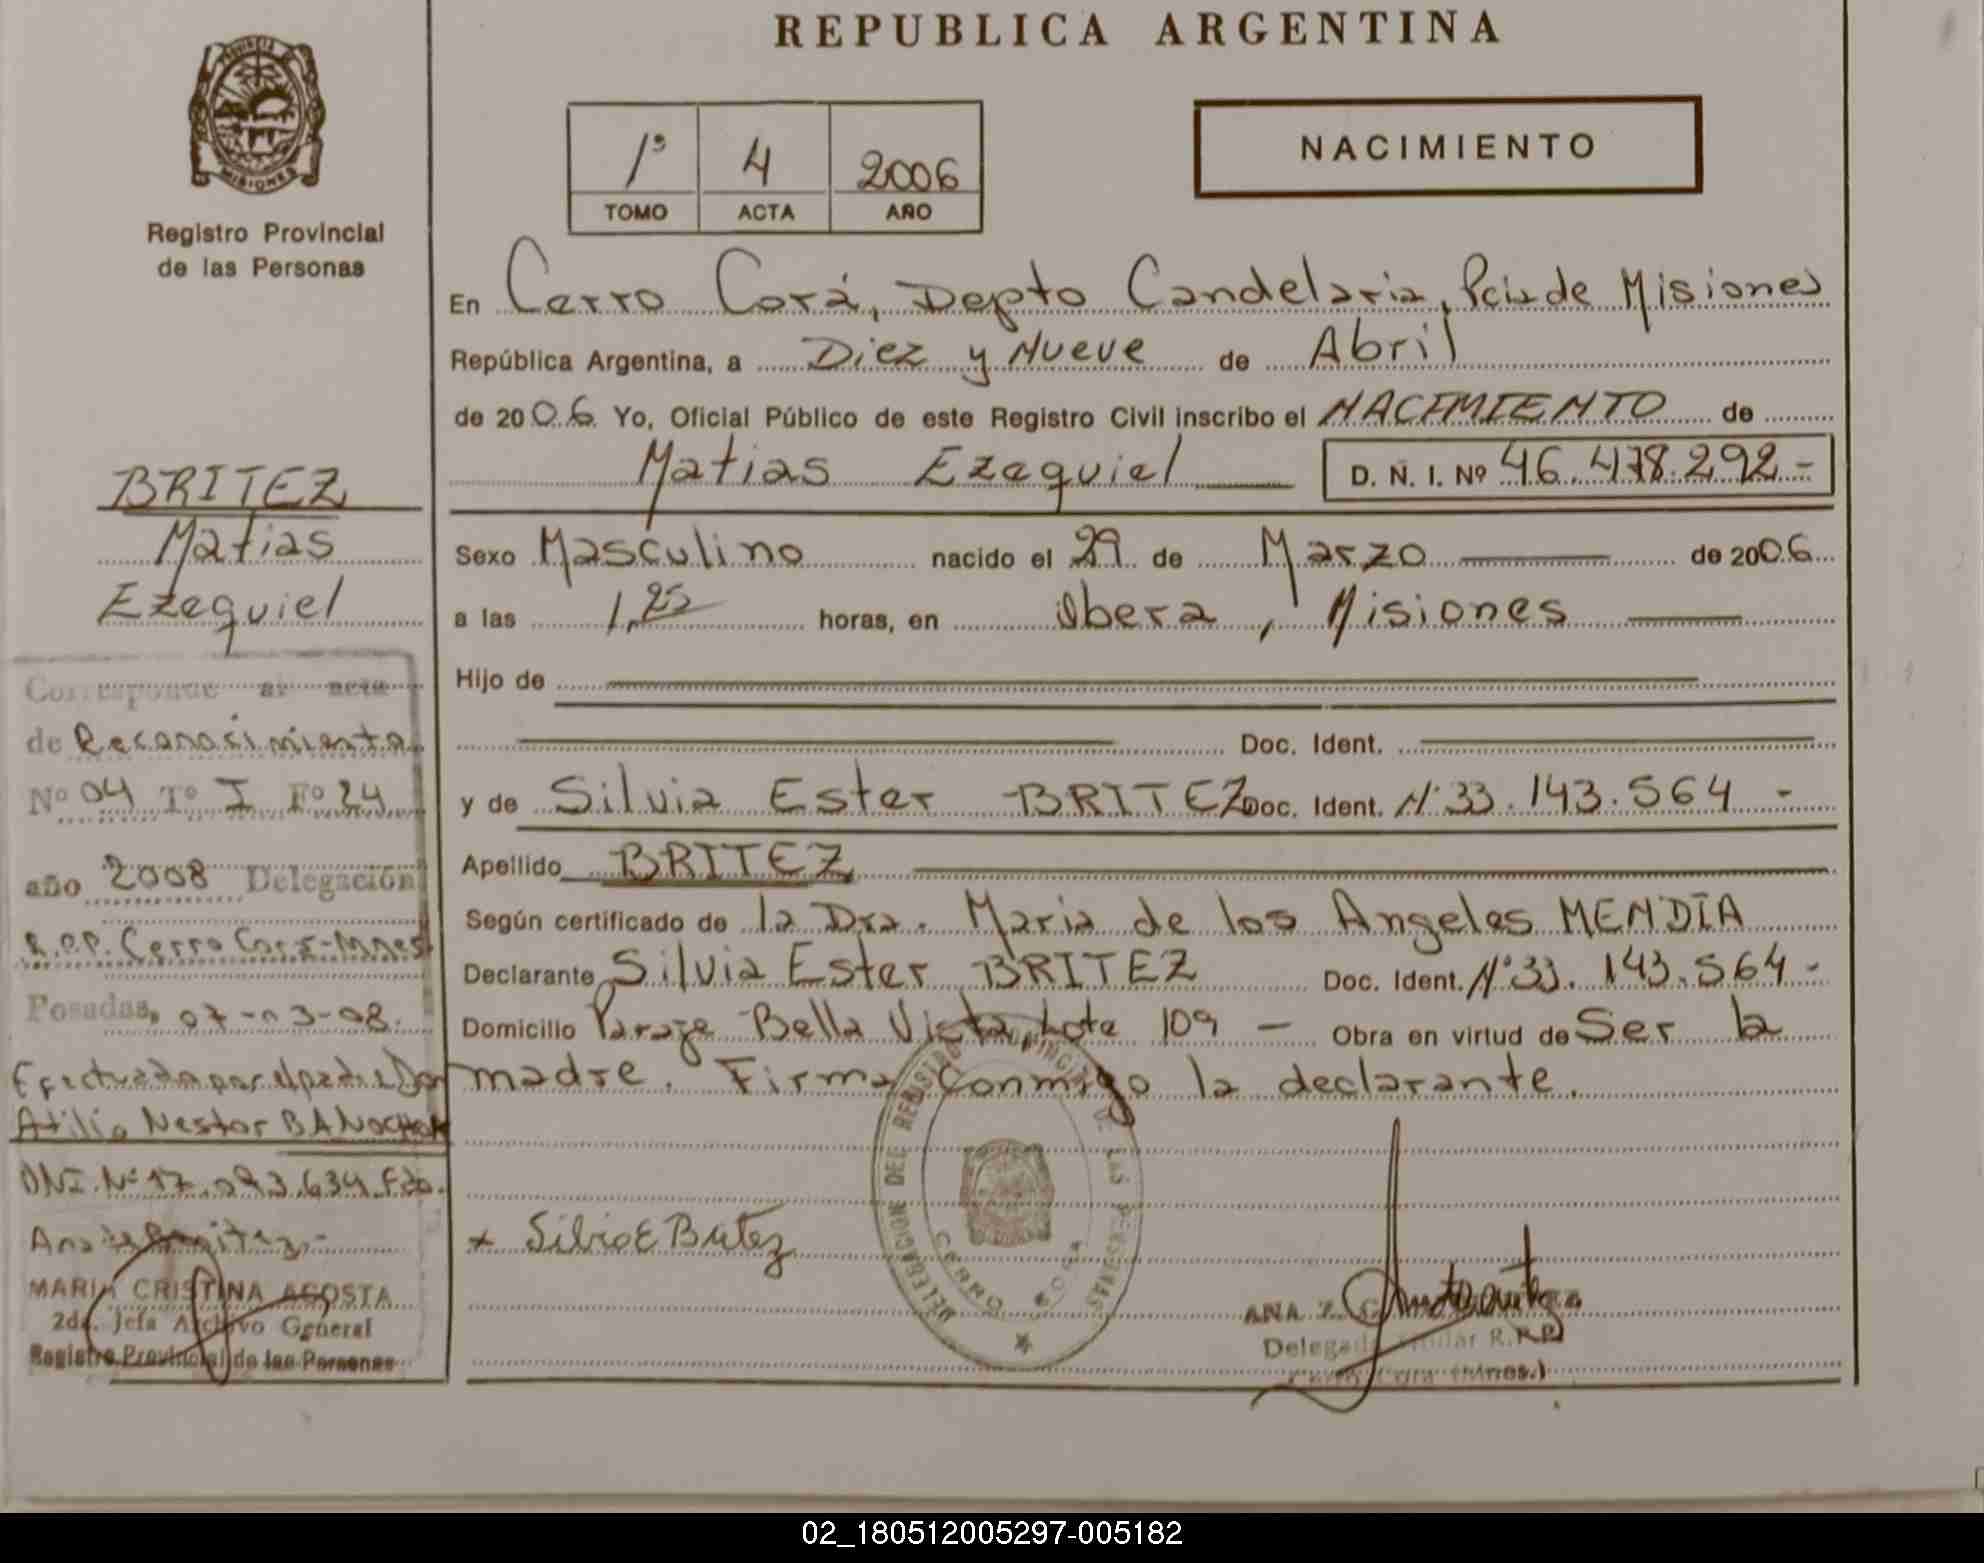 REPUBLICA ARGENTINA
PROVINCIA DE
MISIONES
Registro Provincial
de las Personas
1º 4 2006
TOMO ACTA AÑO
NACIMIENTO
En Cerro Corá, Depto Candelaria, Pcia de Misiones
República Argentina, a Diez y Nueve de Abril
de 2006 Yo, Oficial Público de este Registro Civil inscribo el NACIMIENTO de
Matias Ezequiel D. N. I. Nº 46.478.292.-
BRITEZ
Matias
Ezequiel
Sexo Masculino nacido el 29 de Marzo de 2006
a las 1,25 horas, en Obera, Misiones
Hijo de
Doc. Ident.
y de Silvia Ester BRITEZ Doc. Ident. Nº 33.143.564 -
Apellido BRITEZ
Según certificado de la Dra. Maria de los Angeles MENDÍA
Declarante Silvia Ester BRITEZ Doc. Ident. Nº 33.143.564 -
Domicilio Paraje Bella Vista, Lote 109 - Obra en virtud de Ser la
madre. Firma conmigo la declarante.
Corresponde al acta
de Reconocimiento
Nº 04 Tº I Fº 24
año 2008 Delegación
R.P.P. Cerro Corá-Mnes
Posadas, 07-03-08.
Efectuada por el padre Don
Atilio Nestor
DNI Nº 17.093.634 Fdo.
MARIA CRISTINA ACOSTA
2da. Jefa Archivo General
Registro Provincial de las Personas
x Silvia E Britez
DELEGACION DEL REGISTRO PROVINCIAL DE LAS PERSONAS
CERRO CORA
ANA Z.
Delegada Titular R.P.P.
Cerro Cora (Mnes.)
02_180512005297-005182